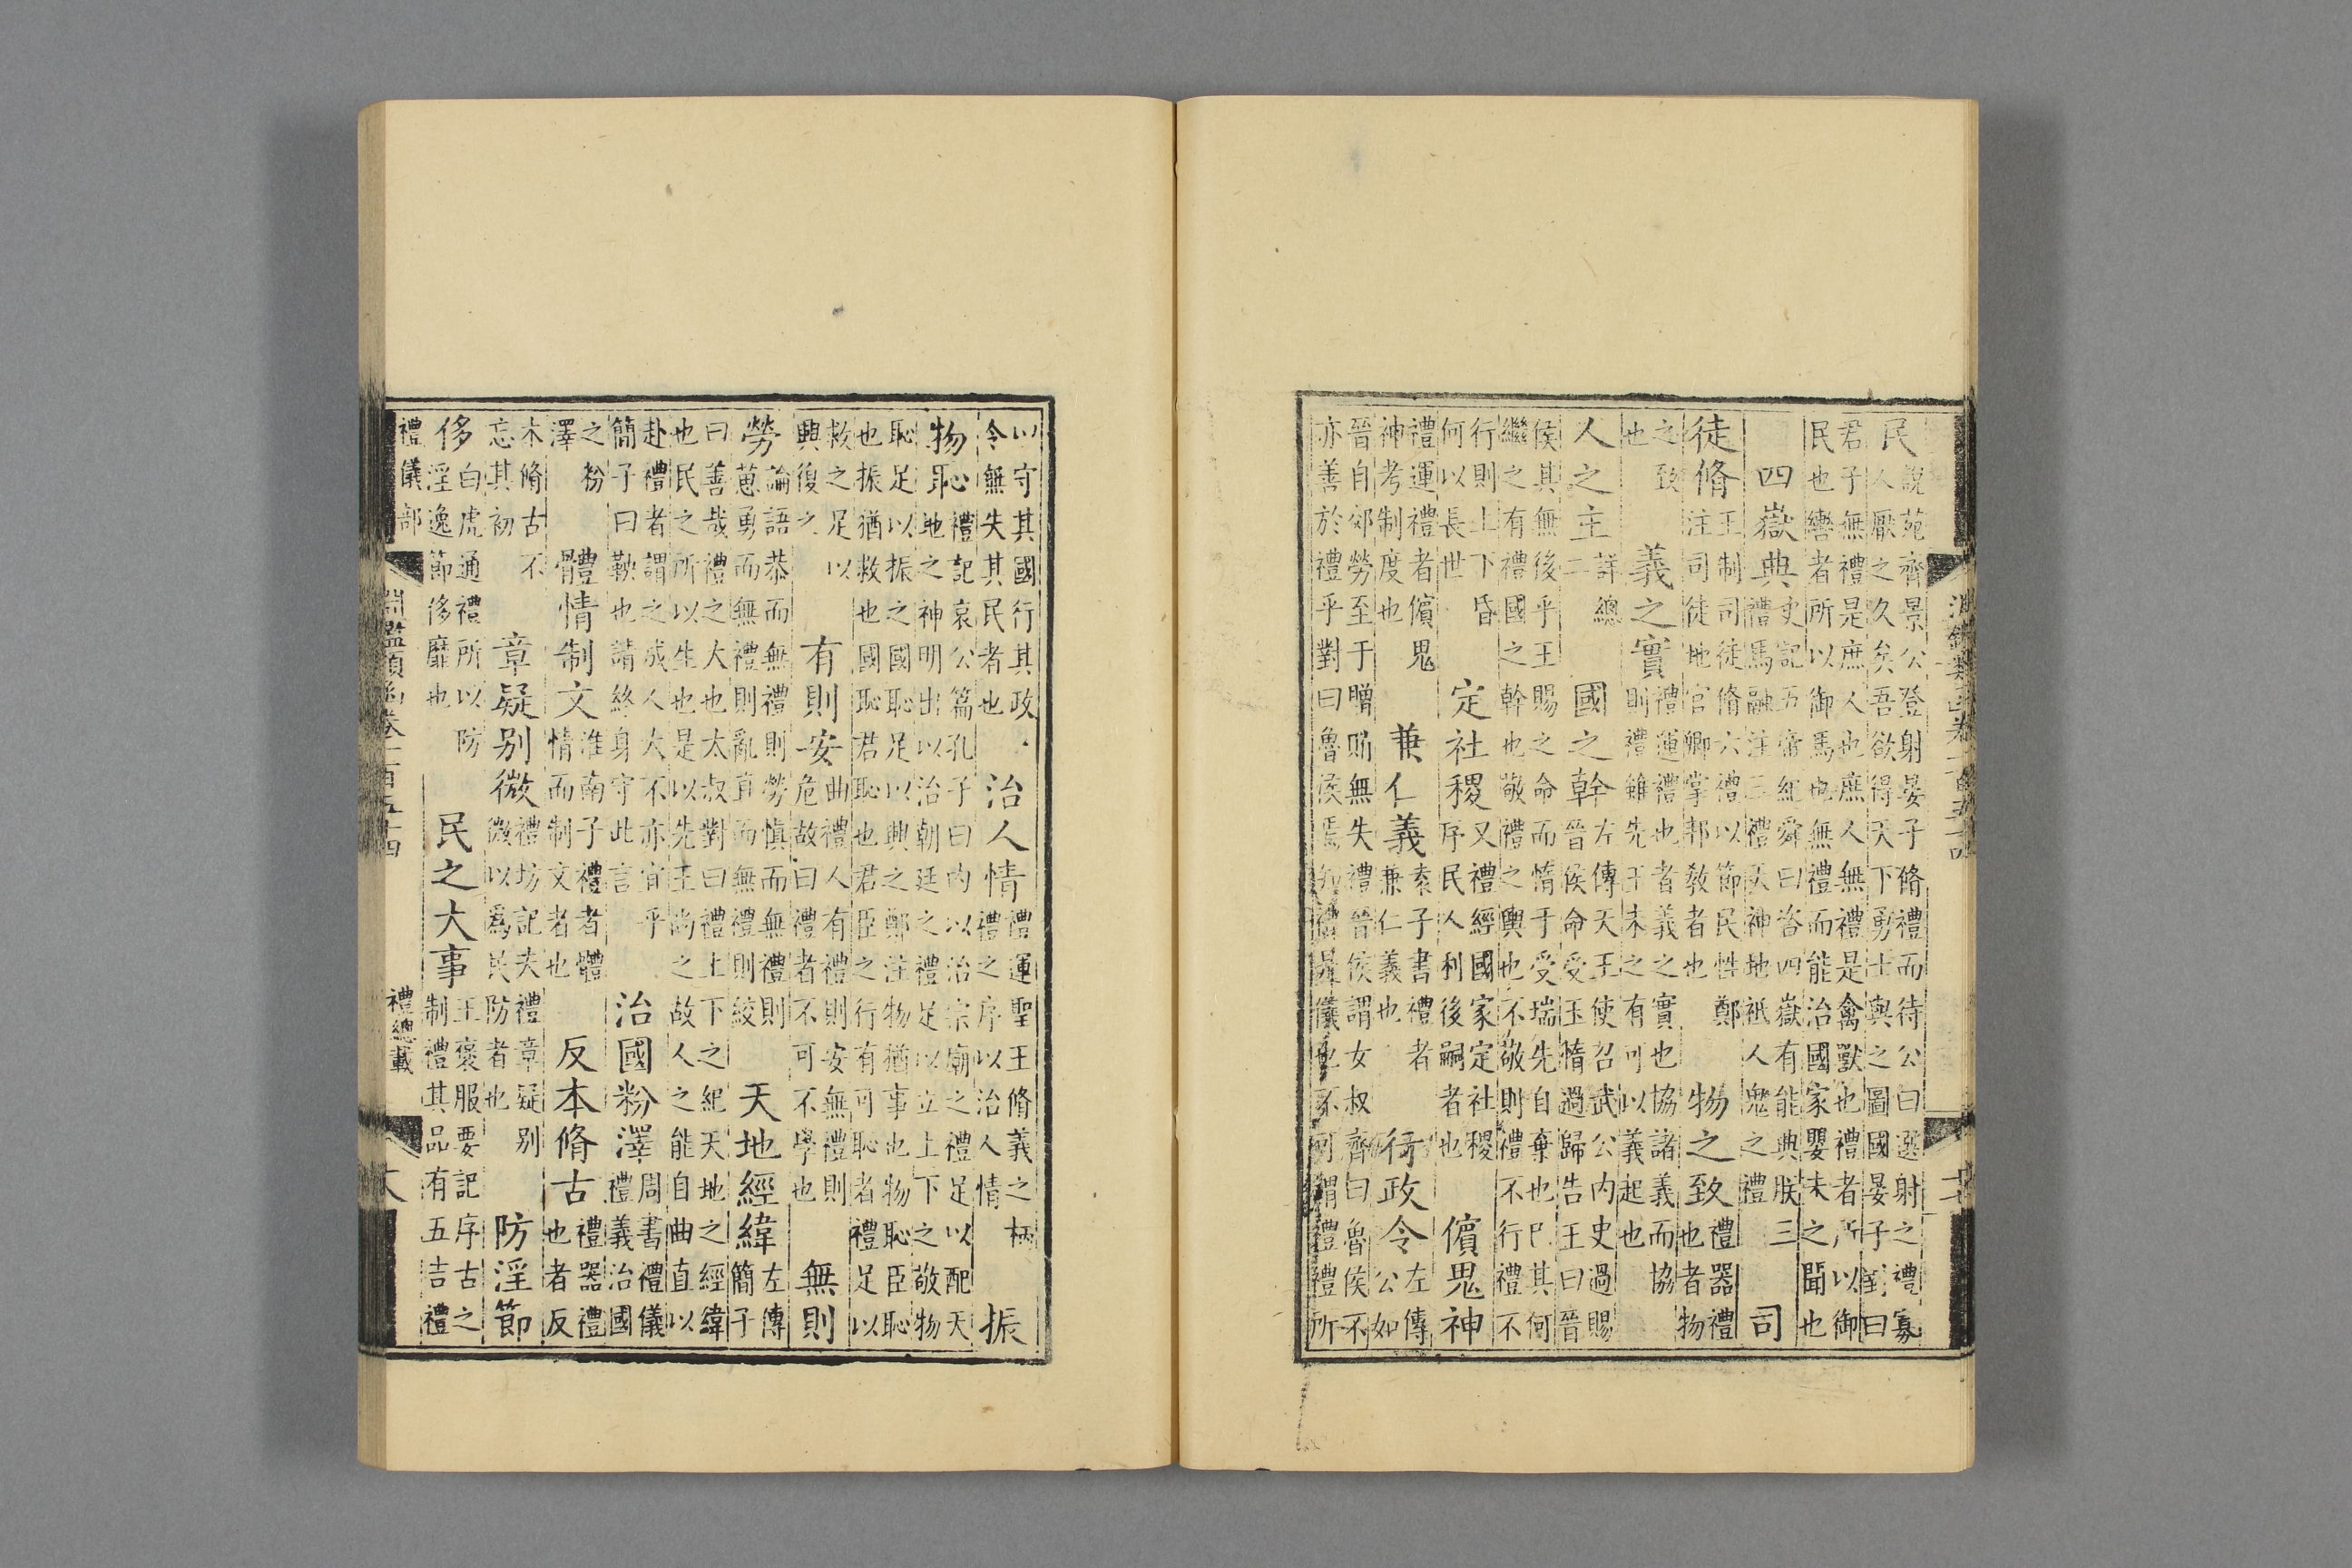 淵鑑類函卷一百五十四
民
說苑齊景公登射晏子脩禮而待公曰選射之禮寡
人厭之久矣吾欲得天下勇士與之圖國晏子對曰
君子無禮是庶人也庶人無禮是禽獸也禮者所以御
民也轡者所以御馬也無禮而能治國家嬰未之聞也
四嶽典
史記五帝紀舜曰咨四嶽有能典朕三
禮馬融注三禮天神地祇人鬼之禮
司
徒脩
王制司徒脩六禮以節民性鄭
注司徒地官卿掌邦敎者也
物之致
禮器禮
也者物
之致
也
義之實
禮運禮也者義之實也協諸義而協
則禮雖先王未之有可以義起也
人之主
詳總
二
國之幹
左傳天王使召武公内史過賜
晉侯命受玉惰過歸告王曰晉
侯其無後乎王賜之命而惰于受瑞先自棄也已其何
繼之有禮國之幹也敬禮之輿也不敬則禮不行禮不
行則上下昏
何以長世
定社稷
又禮經國家定社稷
序民人利後嗣者也
儐鬼神
禮運禮者儐鬼
神考制度也
兼仁義
袁子書禮者
兼仁義也
行政令
左傳
公如
晉自郊勞至于贈賄無失禮晉侯謂女叔齊曰魯侯不
亦善於禮乎對曰魯侯焉知禮是儀也不可謂禮禮所
以守其國行其政
令無失其民者也
治人情
禮運聖王脩義之柄
禮之序以治人情
振
物恥
禮記哀公篇孔子曰内以治宗廟之禮足以配天
地之神明出以治朝廷之禮足以立上下之敬物
恥足以振之國恥足以興之鄭注物猶事也物恥臣恥
也振猶救也國恥君恥也君臣之行有可恥者禮足以
救之足以
興復之
有則安
曲禮人有禮則安無禮則
危故曰禮者不可不學也
無則
勞
論語恭而無禮則勞愼而無禮則
葸勇而無禮則亂直而無禮則絞
天地經緯
左傳
簡子
曰善哉禮之大也太叔對曰禮上下之紀天地之經緯
也民之所以生也是以先王尚之故人之能自曲直以
赴禮者謂之成人大不亦宜乎
簡子曰鞅也請終身守此言
治國粉澤
周書禮儀
禮義治國
之粉
澤
體情制文
淮南子禮者體
情而制文者也
反本脩古
禮器禮
也者反
本脩古不
忘其初
章疑別微
禮坊記夫禮章疑別
微以爲民防者也
防淫節
侈
白虎通禮所以防
淫逸節侈靡也
民之大事
王褒服要記序古之
制禮其品有五吉禮
禮儀部
淵鑑類函卷一百五十四
禮總載